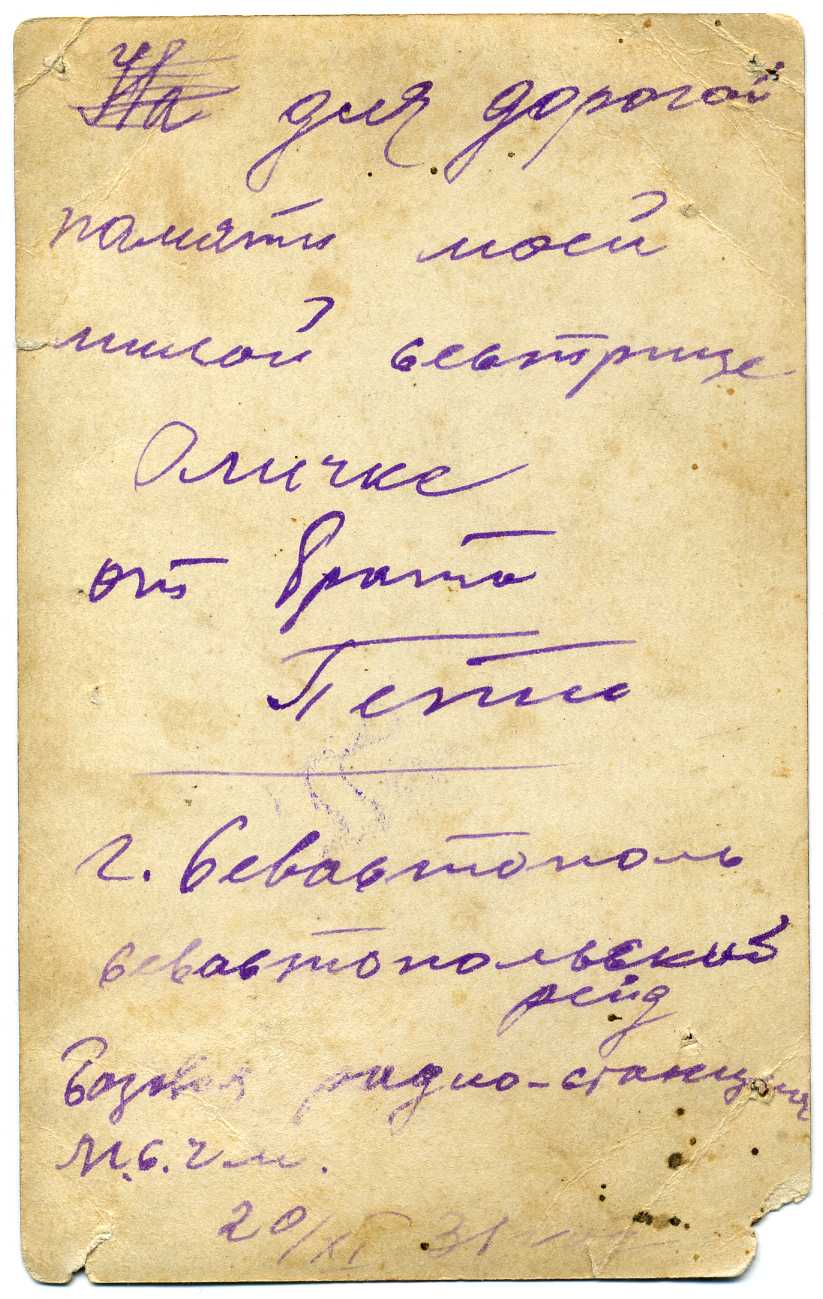 На для дорогой
памяти моей
милой сестрице
Оличке
от брата
Пети
г. Севастополь
севастопольский
рейд
Базная радио-станция
М.С.Ч.М.
20/XI 31